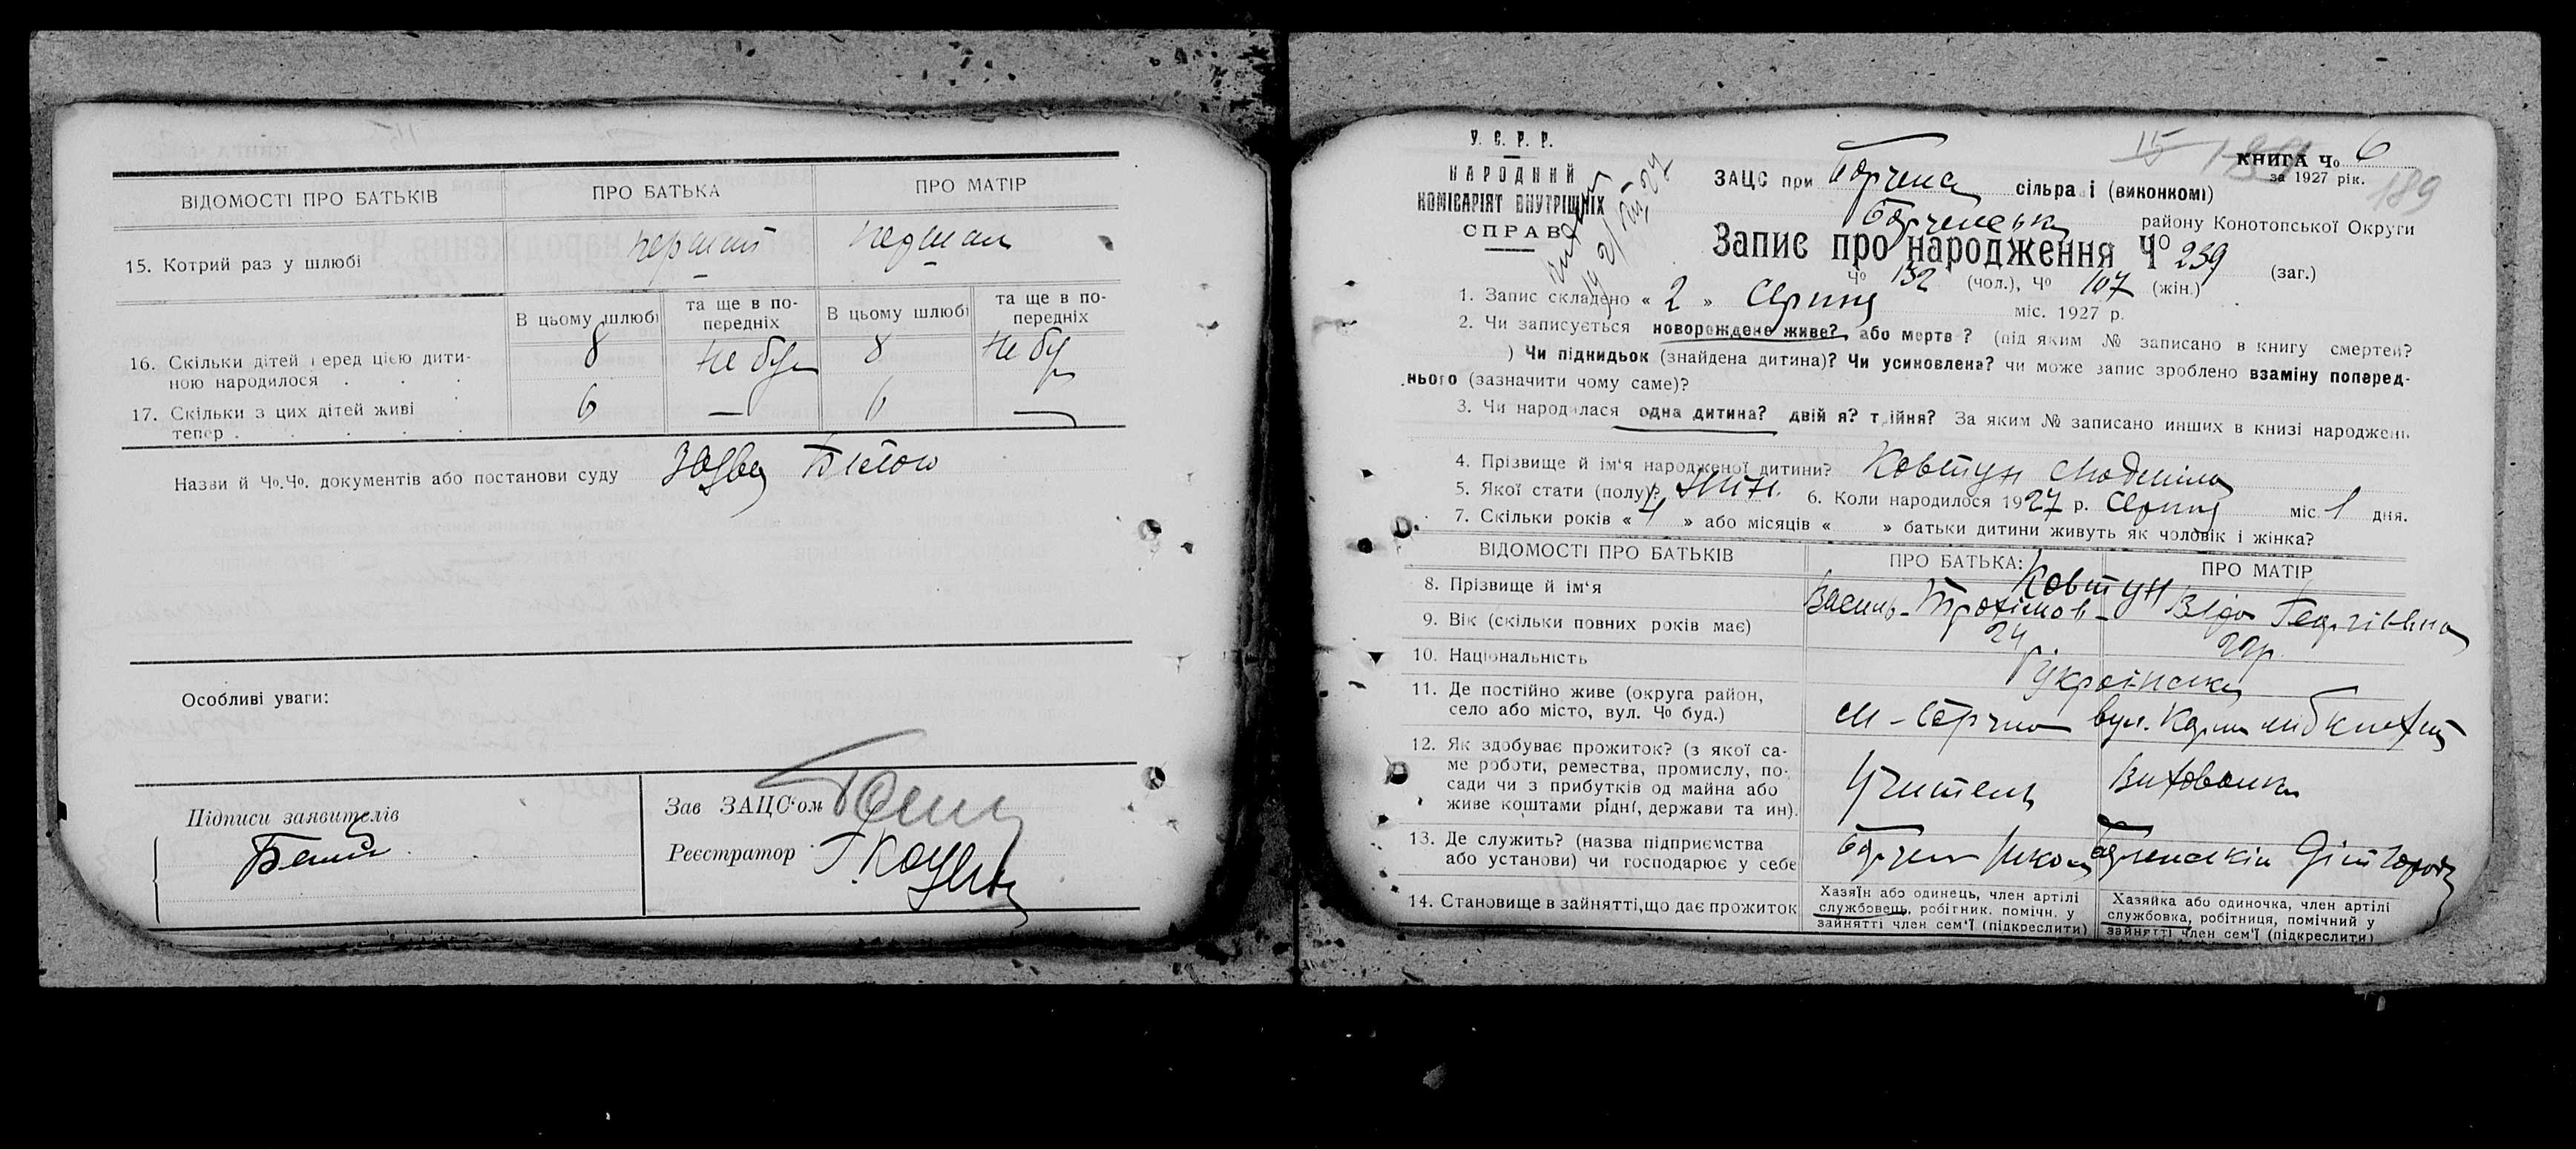 ВІДОМОСТІ ПРО БАТЬКІВ
ПРО БАТЬКА
ПРО МАТІР
15. Котрий раз у шлюбі
перший
перша
В цьому шлюбі
та ще в попередніх
В цьому шлюбі
та ще в попередніх
16. Скільки дітей перед цією дити-
ною народилося . . .
8
не бул
8
не бу
17. Скільки з цих дітей живі
тепер . . . . .
6
—
6
—
Назви й Чо.Чо. документів або постанови суду
Особливі уваги:
Підписи заявителів
Зав ЗАЦС'ом
Реєстратор
У. С. Р. Р.
НАРОДНИЙ
КОМІСАРІЯТ ВНУТРІШНІХ
СПРАВ
15
189
КНИГА Чо 6
за 1927 рік.
189
ЗАЦС при Борзна сільраді (виконкомі)
району Конотопської Округи
Запис про народження Чо 239 (заг.)
Чо 132 (чол.), Чо 107 (жін.)
1. Запис складено « 2 » Серпня міс. 1927 р.
2. Чи записується новорождене живе? або мертве? (під яким № записано в книгу смертей?
) Чи підкидьок (знайдена дитина)? Чи усиновлена? чи може запис зроблено взаміну поперед-
нього (зазначити чому саме)?
3. Чи народилася одна дитина? двійня? трійня? За яким № записано инших в книзі народжень
4. Прізвище й ім'я народженої дитини? Ковтун Людмила
5. Якої стати (полу)? жін. 6. Коли народилося 1927 р. Серпня міс 1 дня.
7. Скільки років « 4 » або місяців « » батьки дитини живуть як чоловік і жінка?
ВІДОМОСТІ ПРО БАТЬКІВ
ПРО БАТЬКА:
ПРО МАТІР
8. Прізвище й ім'я
Ковтун
Василь Трохимов
Віра Георгіївна
9. Вік (скільки повних років має)
24
10. Національність
Українська
11. Де постійно живе (округа район,
село або місто, вул. Чо буд.)
м-Борзна вул. Карла Лібкнехта
12. Як здобуває прожиток? (з якої са-
ме роботи, ремества, промислу, по-
сади чи з прибутків од майна або
живе коштами рідні, держави та ин).
Учитель
13. Де служить? (назва підприємства
або установи) чи господарює у себе
14. Становище в зайнятті, що дає прожиток
Хазяїн або одинець, член артілі
службовець, робітник. помічн. у
зайнятті член сем'ї (підкреслити)
Хазяйка або одиночка, член артілі
службовка, робітниця, помічний у
зайнятті член сем'ї (підкреслити)